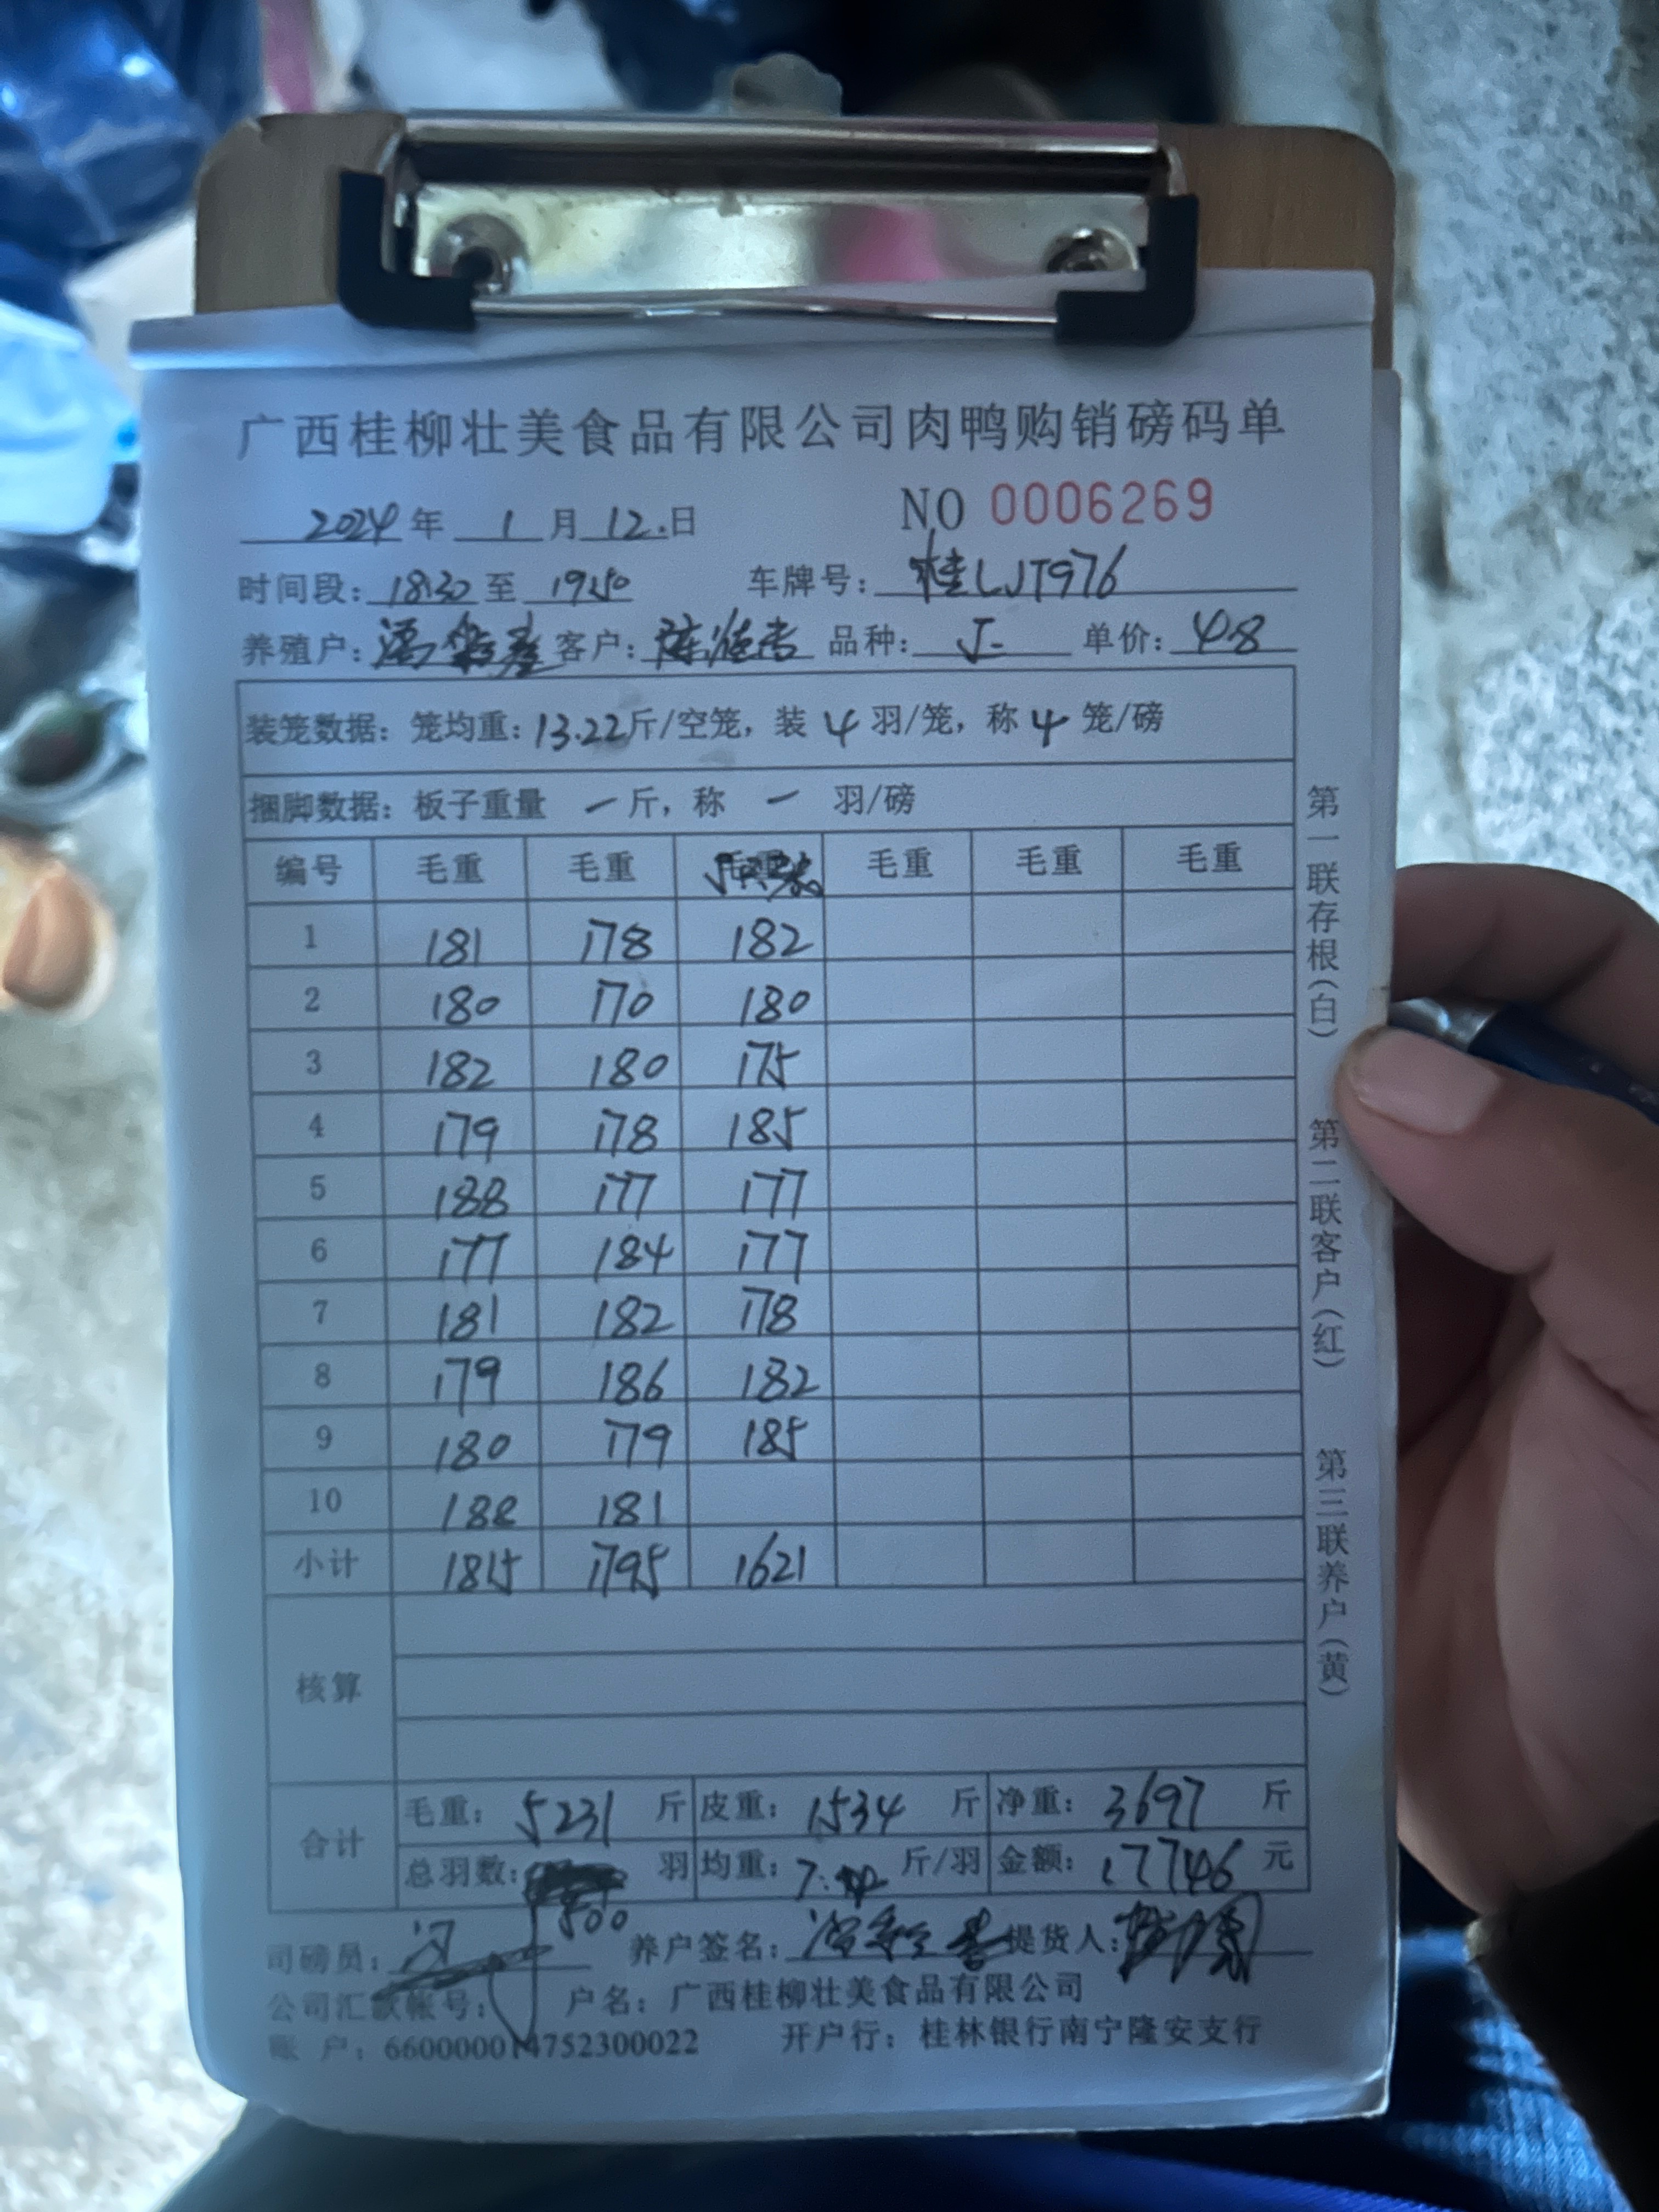 广西桂柳壮美食品有限公司肉鸭购销磅码单
NO 0006269
2024年 1月12.日
时间段: 18:30 至 19:50 车牌号: 桂LJT976
养殖户: 客户: 品种: 单价: 4.8
装笼数据: 笼均重: 13.22斤/空笼, 装 4 羽/笼, 称 4 笼/磅
捆脚数据: 板子重量 一 斤, 称 一 羽/磅
编号 毛重 毛重 毛重 毛重 毛重
1 181 178 182
2 180 170 180
3 182 180 175
4 179 178 185
5 188 177 177
6 177 184 177
7 181 182 178
8 179 186 182
9 180 179 185
10 188 181
小计 1815 1795 1621
核算
合计
毛重: 5231 斤 皮重: 1534 斤 净重: 3697 斤
总羽数: 羽 均重: 斤/羽 金额: 17746 元
500
司磅员: 养户签名: 提货人:
公司汇款帐号: 户名: 广西桂柳壮美食品有限公司
账 户: 660000014752300022 开户行: 桂林银行南宁隆安支行
第一联存根(白)
第二联客户(红)
第三联养户(黄)